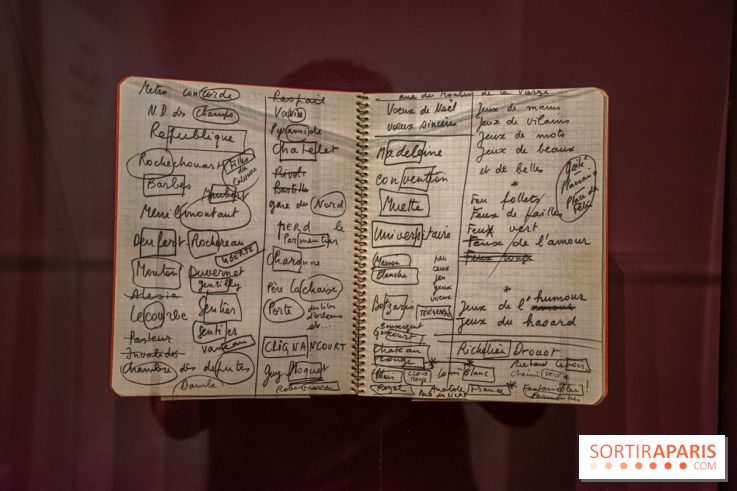 Metro concorde
N.D. des Champs
République
Rochechouart Filles du Calvaire
Barbès
Menilmontant
Denfert Rochereau
LIBERTÉ
Mouton Duvernet
Gentilly
Alesia
Lecourbe Sentier
Sentier
Pasteur Vaneau
Invalides
Chambre des députés
Danube
Raspail
Vavin
Pyramide
Chatelet
Rivoli
Bastille
gare du Nord
PERD le
Parmentier
Charonne
Père Lachaise
Porte des Lilas
d'orleans
etc...
CLIGNANCOURT
Guy Moquet
Robespierre
rue du Moulin de la Vierge
Voeux de Noël
Voeux sincères
Madeleine
Convention
Muette
Universitaire
Maison
Blanche
peu
ceux
jeu
yeux
voeux
Botzaris TELEGRAPHE
Bonsergent
Goncourt
Chateau
Rouge
Blanc CROIX Louis Blanc
Royal Porte des LILAS
Anatole France
Jeux de mains
Jeux de vilains
Jeux de mots
Jeux de beaux
et de belles
*
Feu follets
Feux de failles
Feux vert
Feux de l'amour
Feux rouge
Plaisance
Place des Fêtes
*
Jeux de l'humour
Jeux du hasard
Richelieu Drouot
Richard Lenoir
Chemin vert
Fontainebleau!